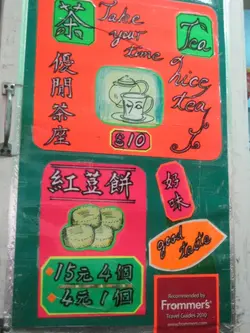 茶
Take
your
time
Tea
nice
tea
優閒茶座
$10
紅荳餅
好味
good
taste
15元4個
4元1個
Recommended by
Frommer's
Travel Guides 2010